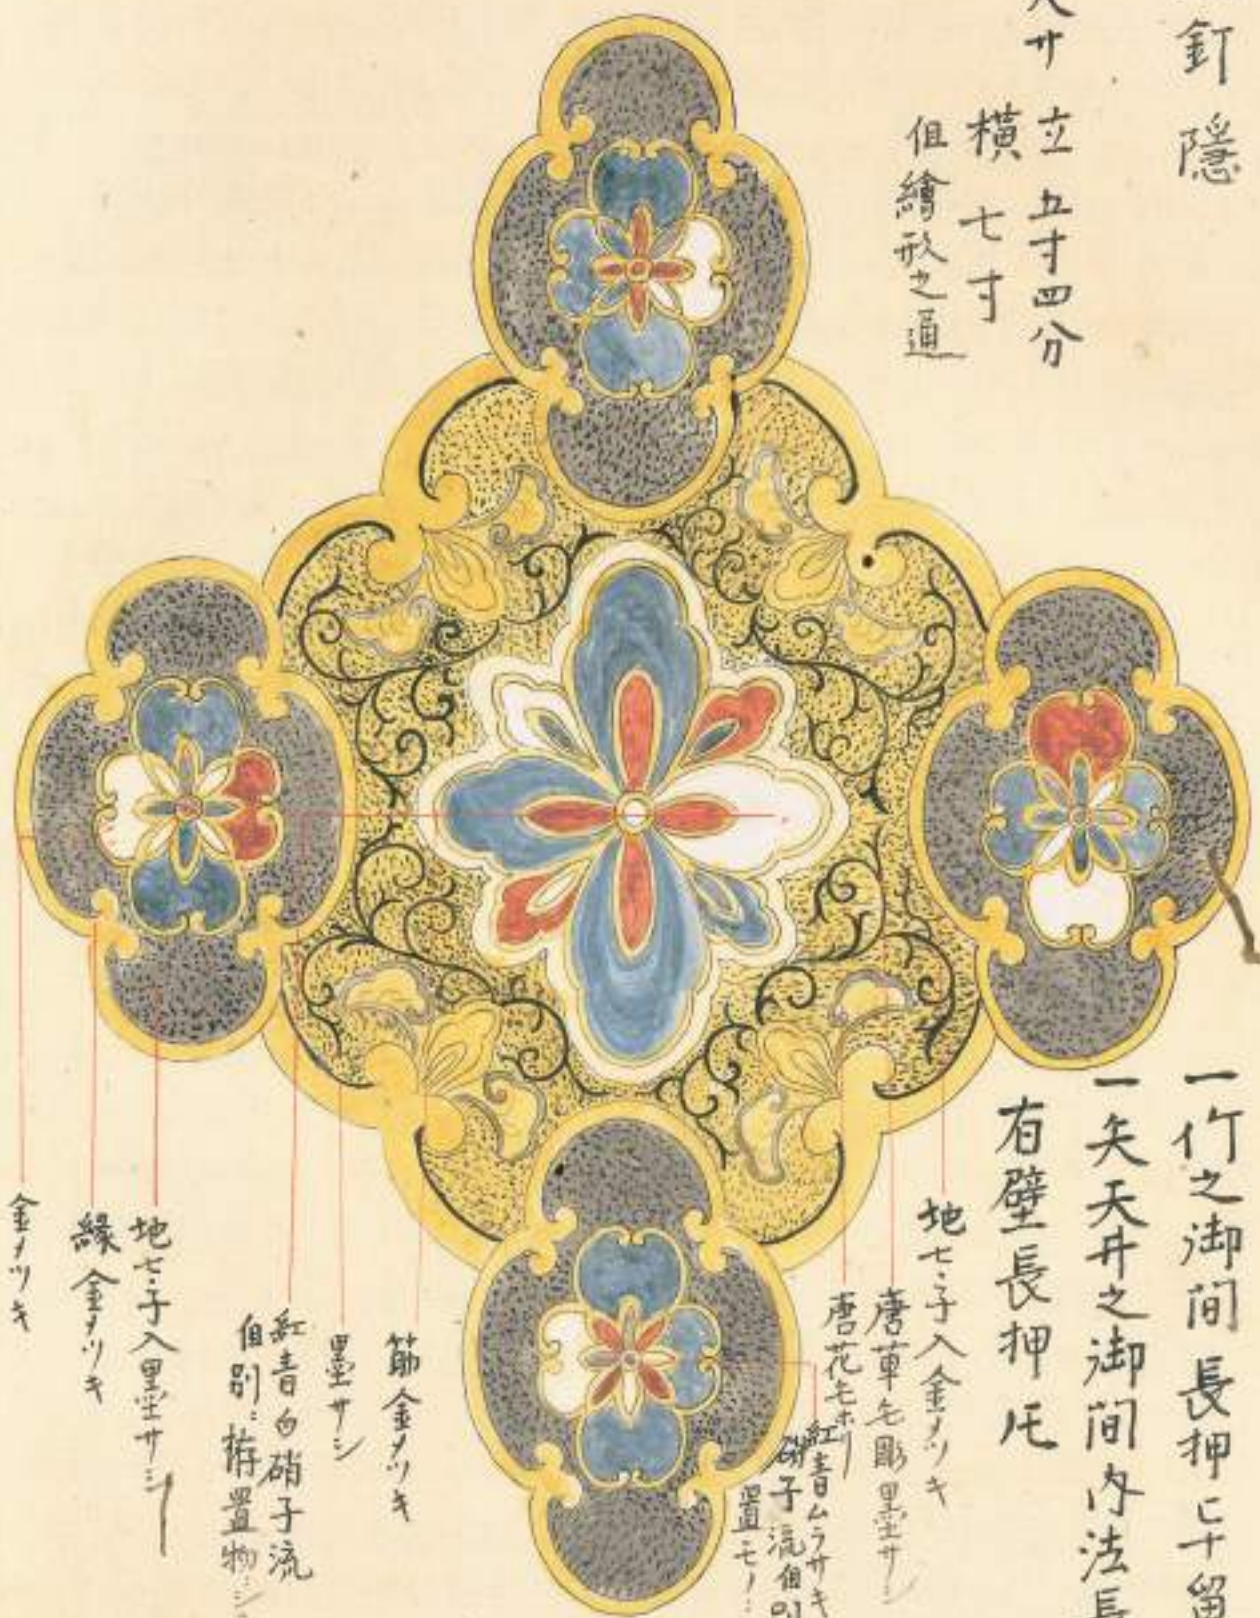 釘隠
大サ 立 五寸四分
横 七寸
但繪形之通
一竹之御間長押上十留
一矢天井之御間内法長
有壁長押圧
地七ヽ子入金メツキ
唐草毛彫墨サシ
唐花毛ホリ
紅青ムラサキ
硝子流但別
置モノ
筋金メツキ
墨サシ
紅青白硝子流
但別ニ拵置物
地七ヽ子入墨サシ
縁金メツキ
金メツキ